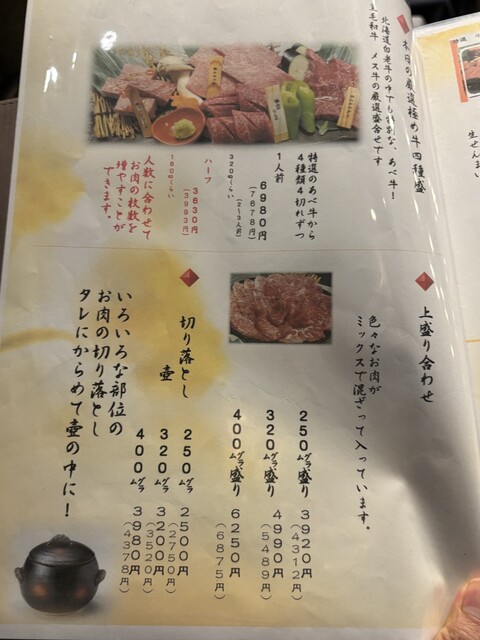 本日の厳選極め牛四種盛
北海道白老牛の中でも特別な、あべ牛!
黒毛和牛 メス牛の厳選盛合せです
特選のあべ牛から
4種類4切れずつ
1人前
6980円
(7678円)
320gくらい
(2~3人前)
ハーフ
3630円
(3993円)
160gくらい
人数に合わせて
お肉の枚数を
増やすことが
できます。
上盛り合わせ
色々なお肉が
ミックスで混ざって入っています。
250グラム盛り 3920円
(4312円)
320グラム盛り 4990円
(5489円)
400グラム盛り 6250円
(6875円)
切り落とし
壺
250グラム 2500円
(2750円)
320グラム 3200円
(3520円)
400グラム 3980円
(4378円)
いろいろな部位の
お肉の切り落とし
タレにからめて壺の中に!